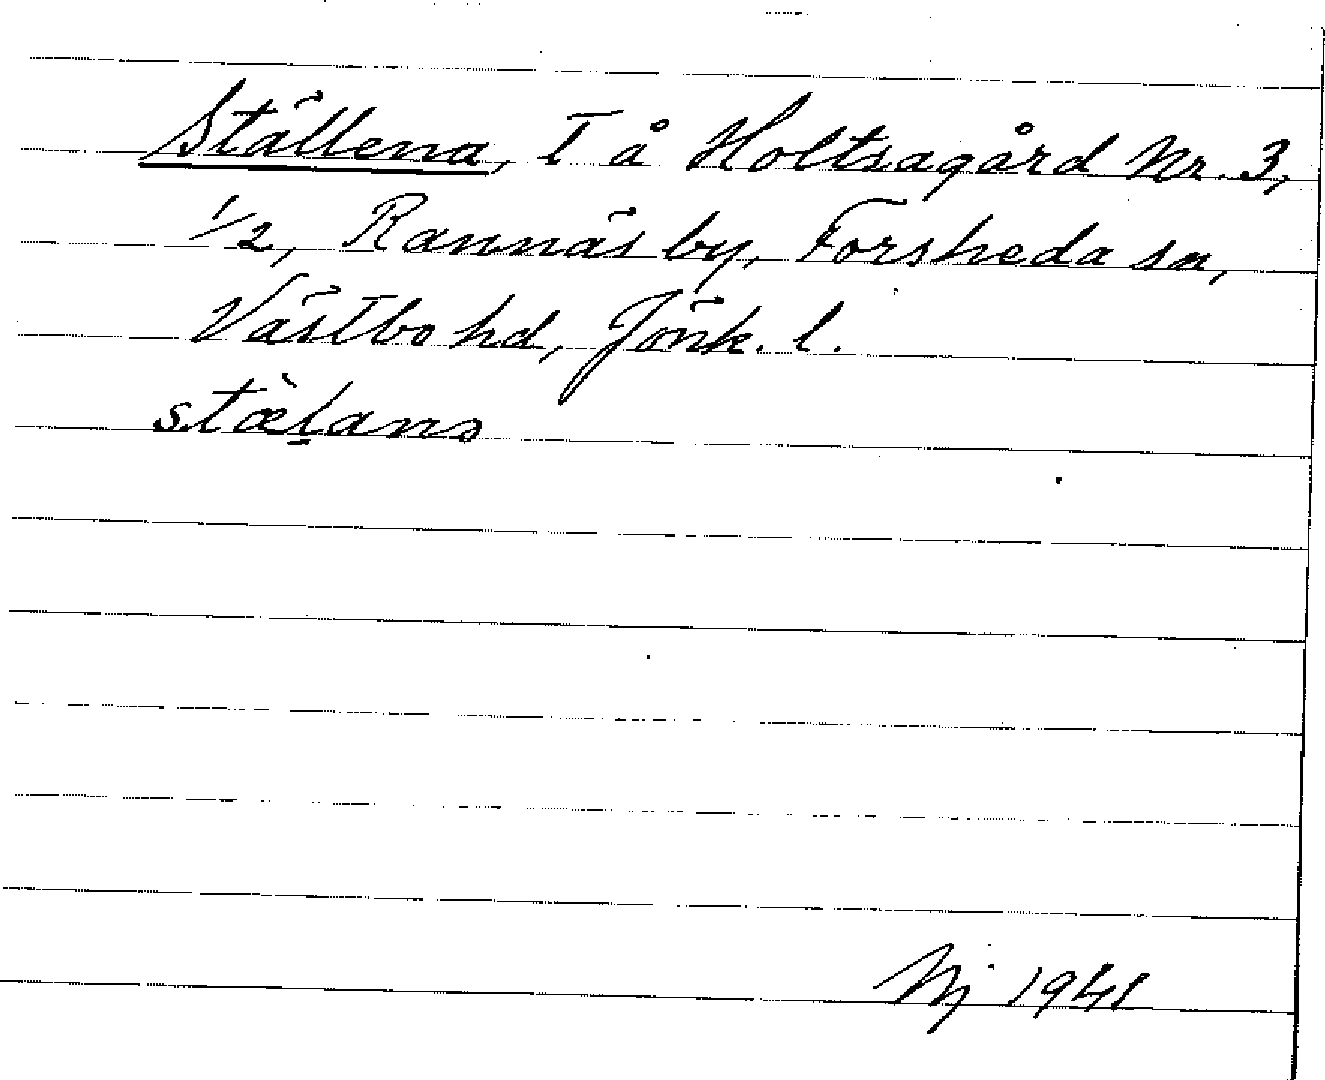 Ställena, T å Holtsagård Nr. 3,
1/2, Rannäs by, Forsheda sn,
Västbo hd, Jönk. l.
stæ̀l̠ans
Nj 1941